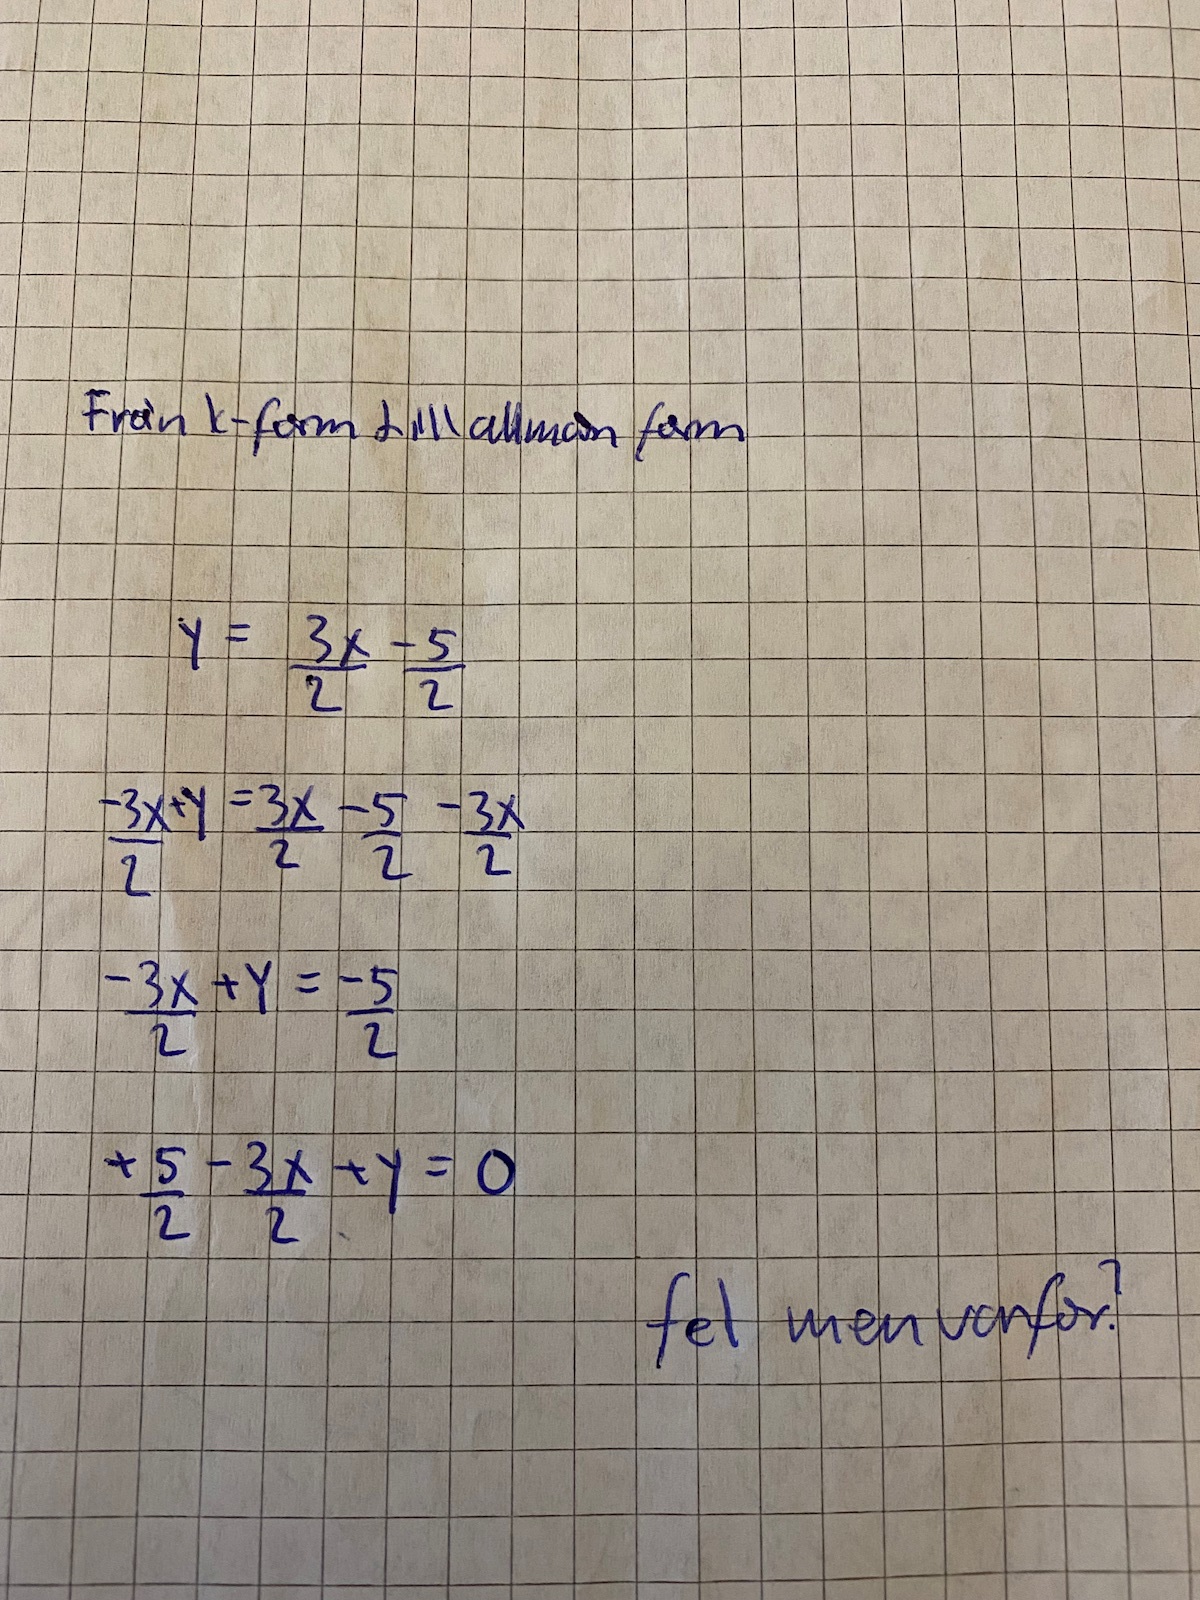 Från k-form till allmän form
y = 3x/2 - 5/2
-3x/2 + y = 3x/2 - 5/2 - 3x/2
-3x/2 + y = -5/2
+ 5/2 - 3x/2 + y = 0
fel men varför?